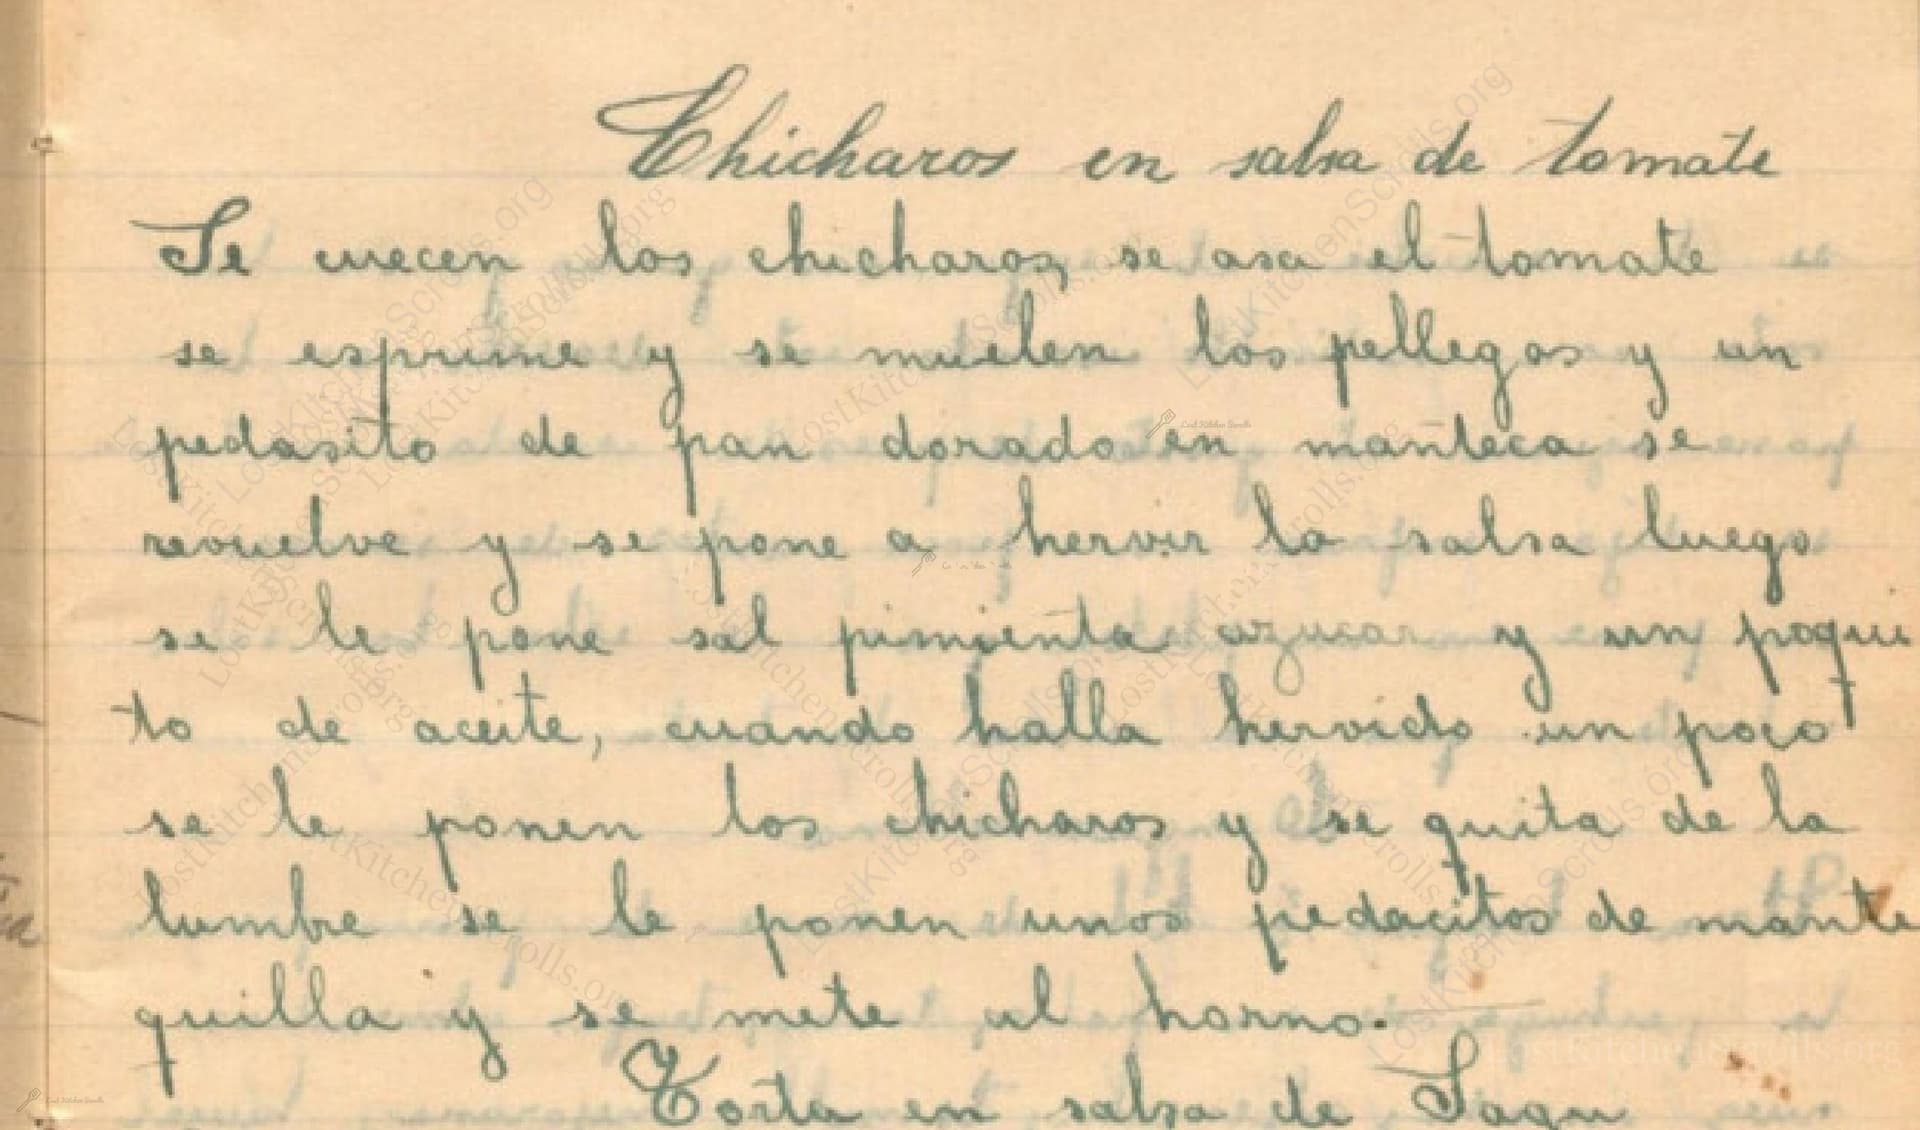 Chicharos en salsa de tomate
Se cuecen los chicharos, se asa el tomate
se esprime y se muelen los pellegos y un
pedasito de pan dorado en manteca se
revuelve y se pone a hervir la salsa luego
se le pone sal pimienta azucar y un poqui
to de aceite, cuando halla hervido un poco
se le ponen los chicharos y se quita de la
lumbre se le ponen unos pedacitos de mante
quilla y se mete al horno.
Torta en salsa de